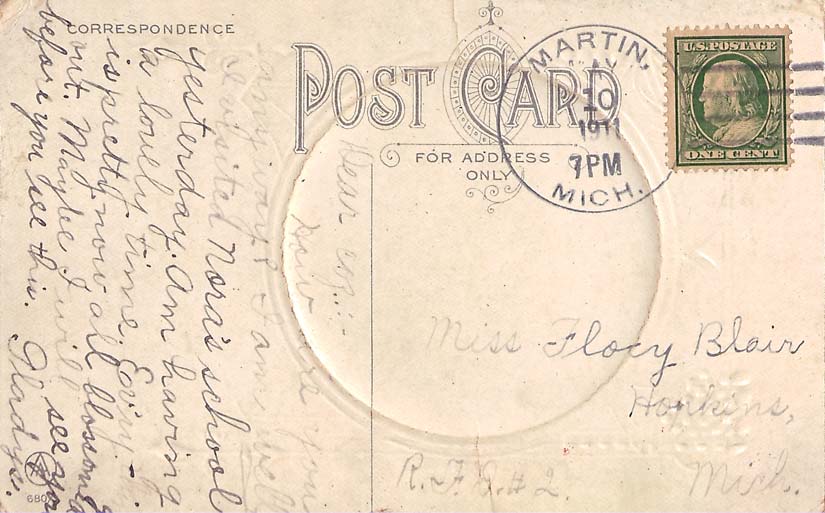 CORRESPONDENCE
POST CARD
FOR ADDRESS
ONLY
MARTIN,
MAY
10
1911
7PM
MICH.
U.S. POSTAGE
ONE CENT
Dear coz:-
How are you
anyway? I am well
I visited Nora's school
yesterday. Am having
a lovely time. Every-
is pretty now all blossomed
out. Maybe I will see you
before you see this. Gladys.
Miss Flocy Blair
Hopkins,
Mich.
R.F.D.#2.
680